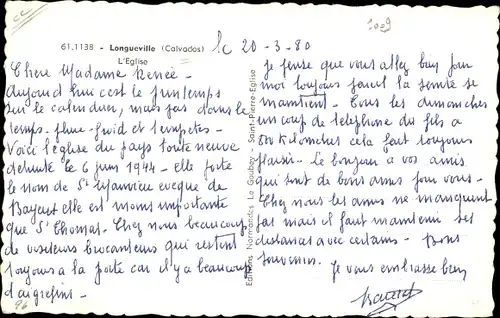 1029
61.1138 - Longueville (Calvados)
L'Eglise
le 20-3-80
Chère Madame Renée -
aujourd'hui c'est le printemps
sur le calendrier, mais pas dans le
temps - pluie - froid et tempêtes -
Voici l'église du pays toute neuve
détruite le 6 juin 1944 - elle porte
le nom de St Manvieu evêque de
Bayeux elle est moins importante
que St Thomas. Chez nous beaucoup
de visiteurs brocanteurs qui restent
toujours à la porte car il y a beaucoup
d'aigrefins -
96
Editions Normandes Le Goubey - Saint-Pierre-Eglise
je pense que vous allez bien pour
moi toujours pareil la santé se
maintient - Tous les dimanches
un coup de téléphone du fils à
800 kilomètres cela fait toujours
plaisir - Le bonjour à vos amis
qui sont de bons amis pour vous -
Chez nous les amis ne manquent
pas mais il faut maintenir ses
distances avec certains - Bons
souvenirs.
Je vous embrasse bien